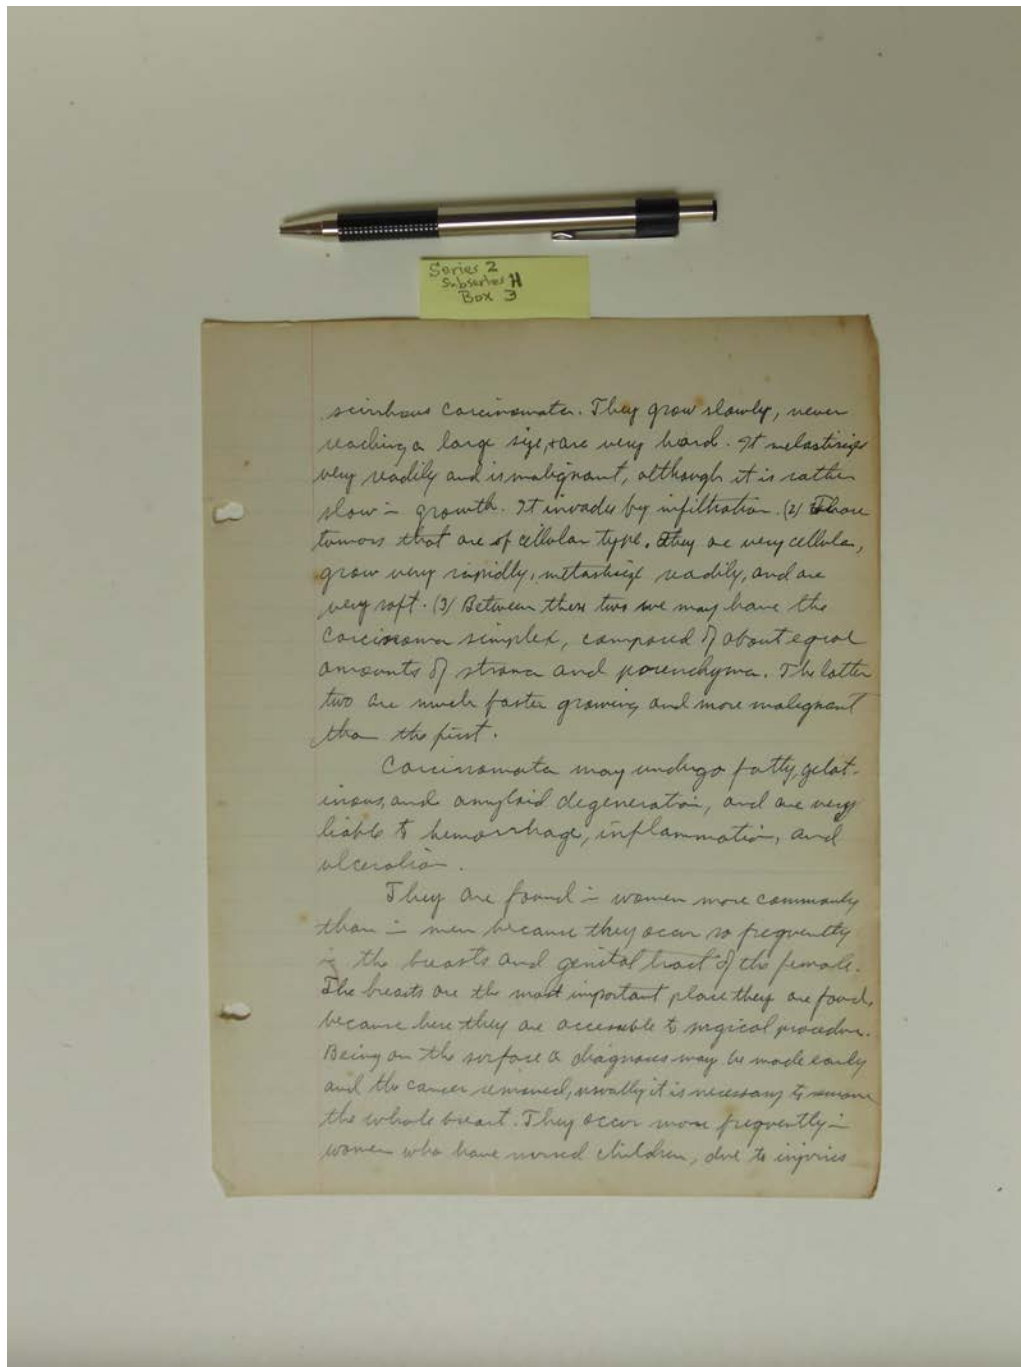 Series 2
Subseries H
Box 3
scirrhous carcinomata. They grow slowly, never
reaching a large size, & are very hard. It metastisizes
very readily and is malignant, although it is rather
slow in growth. It invades by infiltration. (2) Those
tumors that are of cellular type. They are very cellular,
grow very rapidly, metastisize readily, and are
very soft. (3) Between these two we may have the
carcinoma simplex, composed of about equal
amounts of stroma and parenchyma. The latter
two are much faster growing and more malignant
than the first.
Carcinomata may undergo fatty, gelat-
inous, and amyloid degeneration, and are very
liable to hemorrhage, inflammation, and
ulceration.
They are found in women more commonly
than in men because they occur so frequently
in the breasts and genital tract of the female.
The breasts are the most important place they are found,
because here they are accessible to surgical procedure.
Being on the surface a diagnosis may be made early
and the cancer removed, usually it is necessary to remove
the whole breast. They occur more frequently in
women who have nursed children, due to injuries